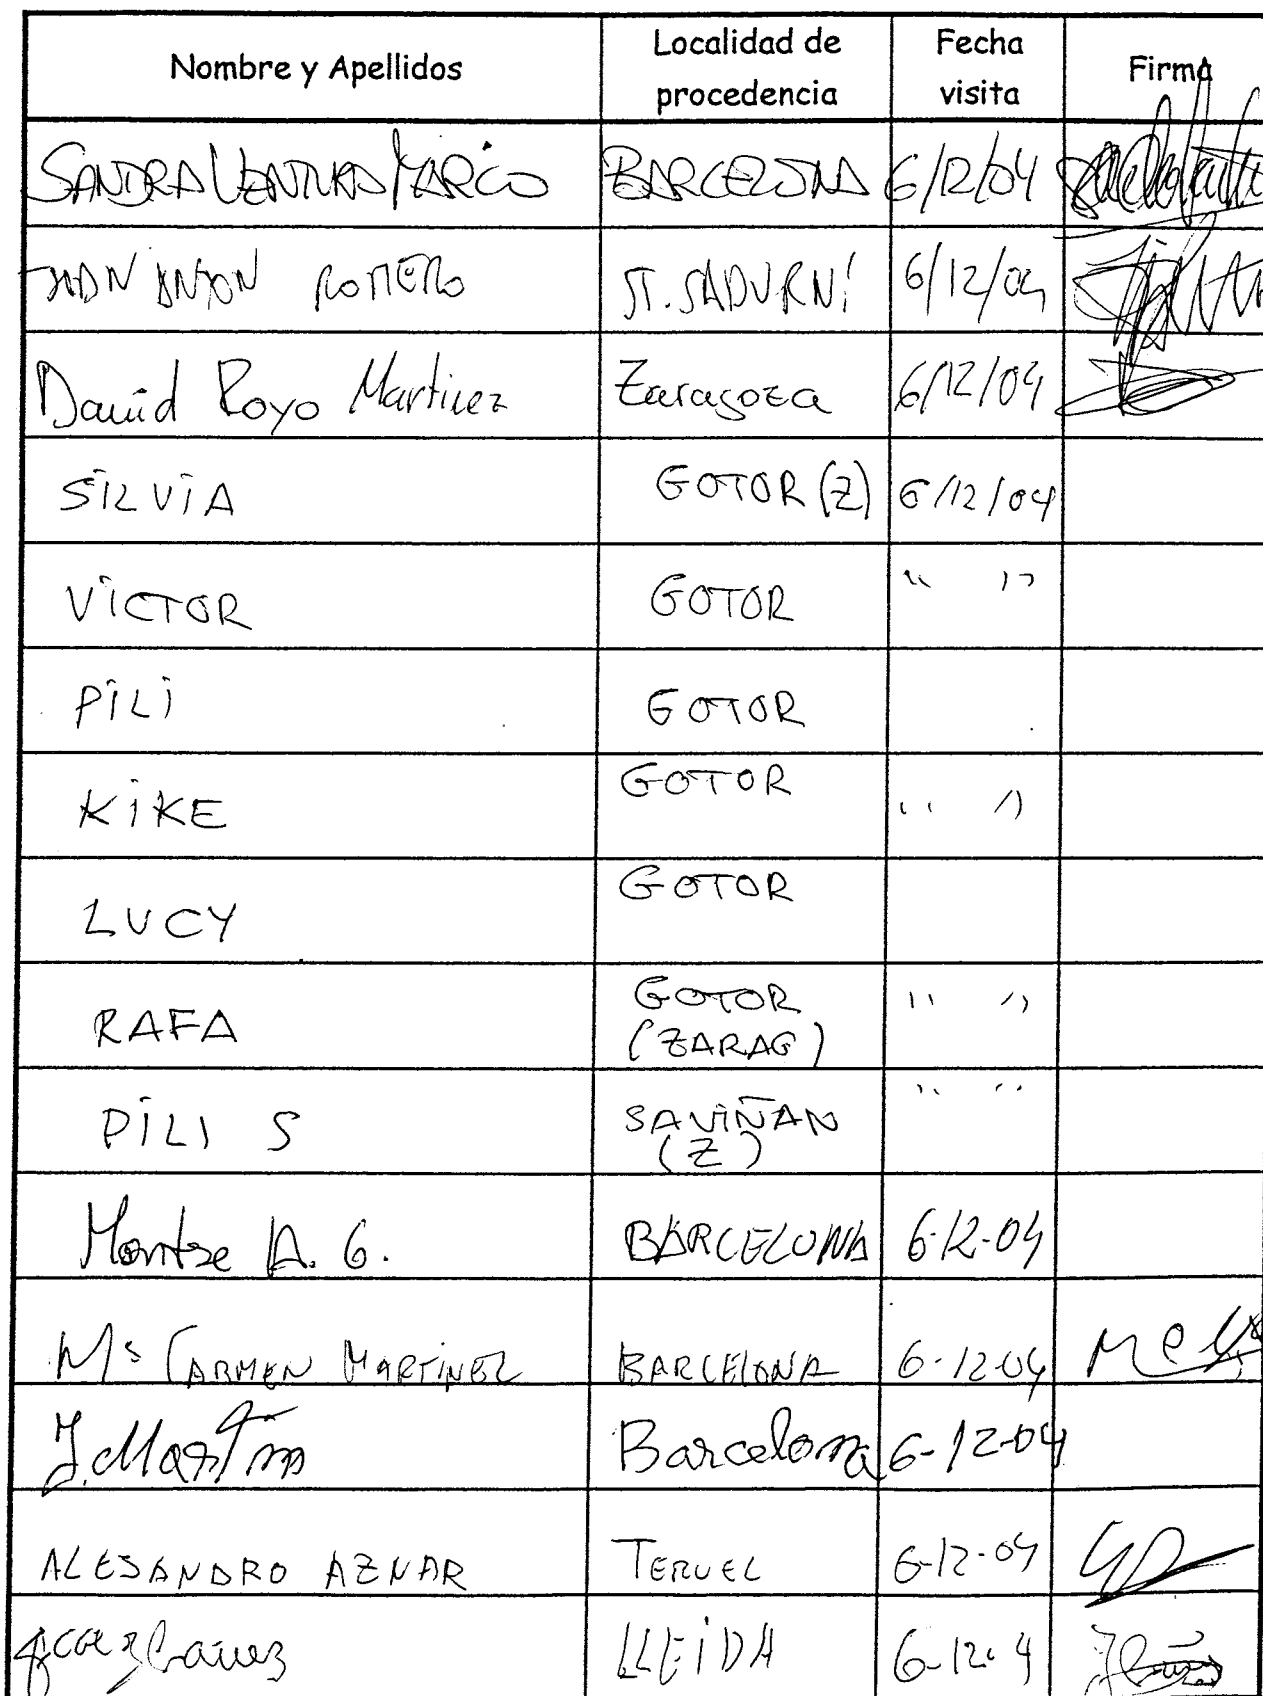 Nombre y Apellidos Localidad de procedencia Fecha visita Firma
SANDRA VENTURA MARCO BARCELONA 6/12/04
JUAN ANTON ROMERO ST. SADURNÍ 6/12/04
David Royo Martinez Zaragoza 6/12/04
SILVIA GOTOR (Z) 6/12/04
VICTOR GOTOR " "
PILI GOTOR
KIKE GOTOR " "
LUCY GOTOR
RAFA GOTOR (ZARAG) " "
PILI S SAVIÑAN (Z) " "
Montse A. G. BARCELONA 6-12-04
Mª CARMEN MARTINEZ BARCELONA 6-12-04
J. Martin Barcelona 6-12-04
ALESANDRO AZNAR TERUEL 6-12-04
LLEIDA 6-12-4